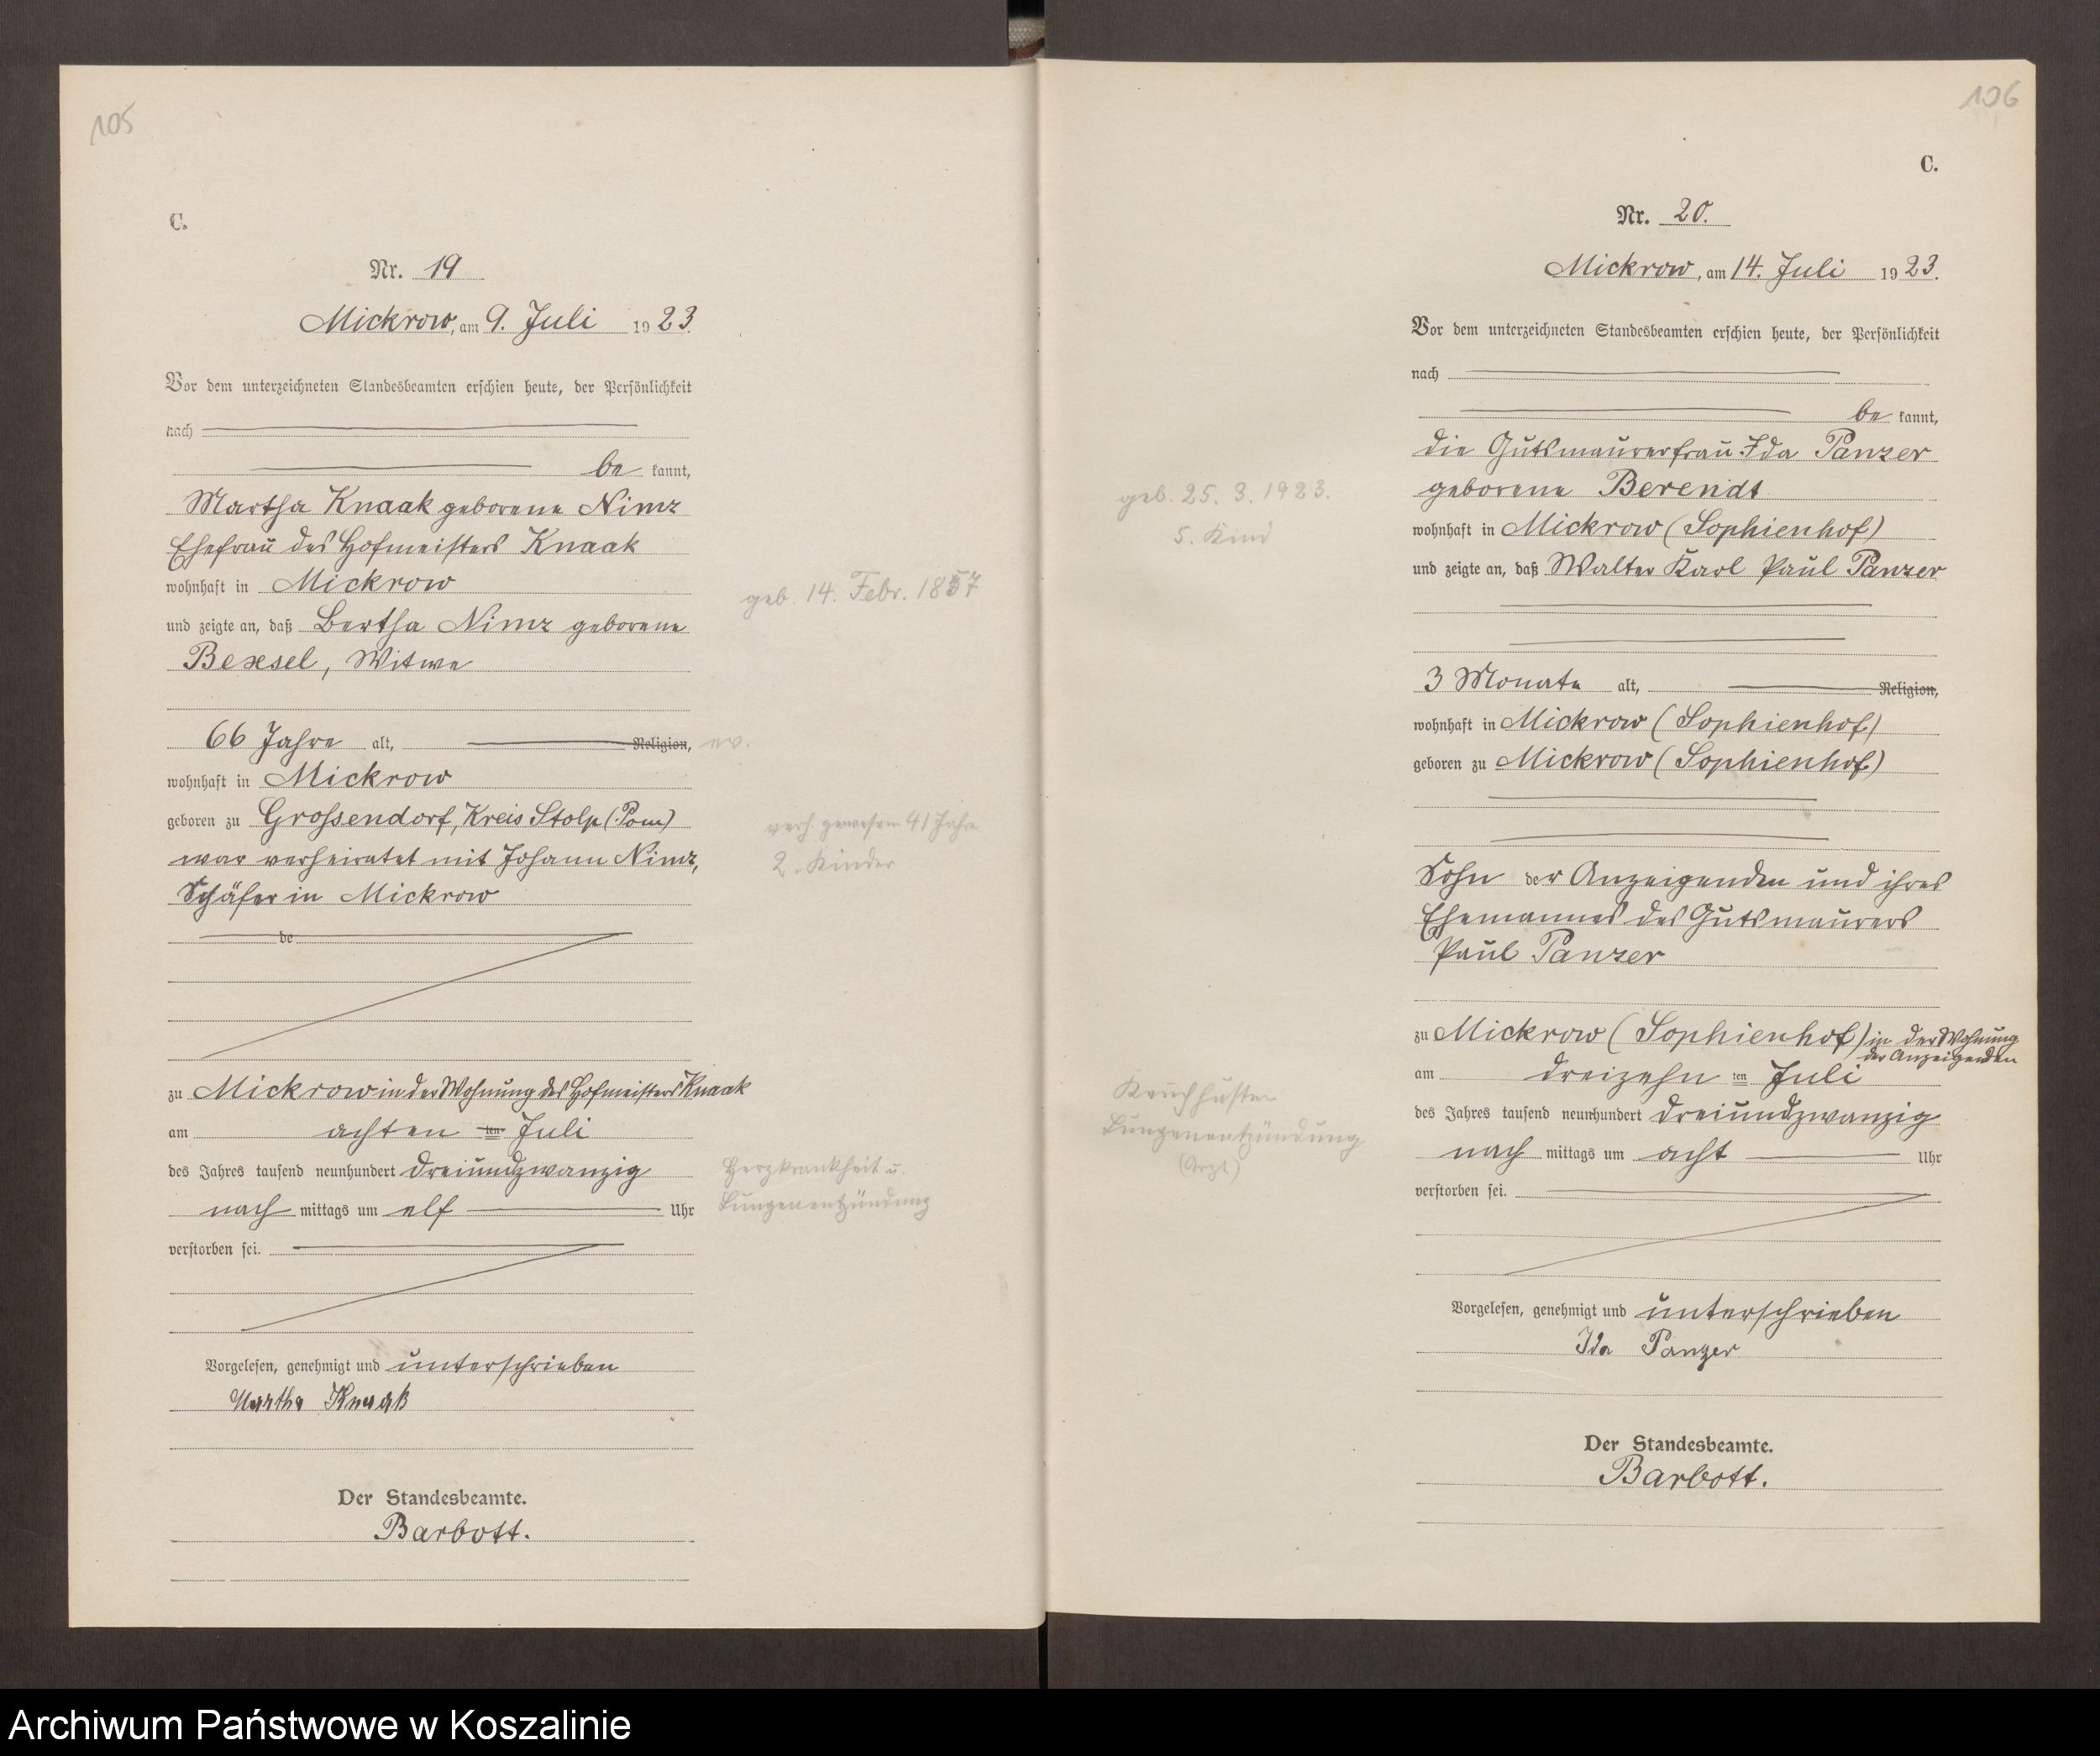 105
C.
Nr. 19
Mickrow, am 9. Juli 1923.
Vor dem unterzeichneten Standesbeamten erschien heute, der Persönlichkeit
nach
be kannt,
Martha Knaak geborene Nimz
Ehefrau des Hofmeisters Knaak
wohnhaft in Mickrow
geb. 14. Febr. 1857
und zeigte an, daß Bertha Nimz geborene
Bexsel, Witwe
66 Jahre alt, Religion, ev.
wohnhaft in Mickrow
geboren zu Grossendorf, Kreis Stolp (Pom)
verh. gewesen 41 Jahre
war verheiratet mit Johann Nimz,
2. Kinder
Schäfer in Mickrow
de
zu Mickrow in der Wohnung des Hofmeisters Knaak
am achten ten Juli
des Jahres tausend neunhundert dreiundzwanzig
Herzkrankheit u.
nach mittags um elf Uhr
Lungenentzündung
verstorben sei.
Vorgelesen, genehmigt und unterschrieben
Martha Knaak
Der Standesbeamte.
Barbott.
106
C.
Nr. 20.
Mickrow, am 14. Juli 1923.
Vor dem unterzeichneten Standesbeamten erschien heute, der Persönlichkeit
nach
be kannt,
die Gutsmaurerfrau Ida Panzer
geborene Berendt
geb. 25. 3. 1923.
wohnhaft in Mickrow (Sophienhof)
5. Kind
und zeigte an, daß Walter Karl Paul Panzer
3 Monate alt, Religion,
wohnhaft in Mickrow (Sophienhof)
geboren zu Mickrow (Sophienhof)
Sohn der Anzeigenden und ihres
Ehemannes des Gutsmaurers
Paul Panzer
zu Mickrow (Sophienhof) in der Wohnung
der Anzeigenden
am dreizehn ten Juli
Keuchhusten
des Jahres tausend neunhundert dreiundzwanzig
Lungenentzündung
nach mittags um acht Uhr
(Arzt)
verstorben sei.
Vorgelesen, genehmigt und unterschrieben
Ida Panzer
Der Standesbeamte.
Barbott.
Archiwum Państwowe w Koszalinie